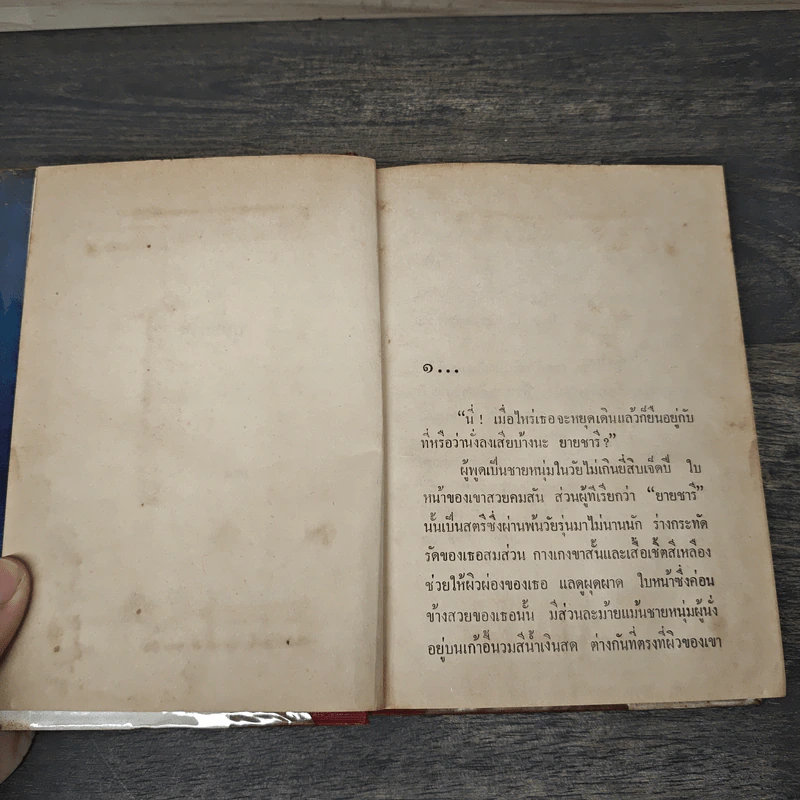 ๑...
“นี่ ! เมื่อไหร่เธอจะหยุดเดินแล้วก็ยืนอยู่กับ
ที่หรือว่านั่งลงเสียบ้างนะ ยายชารี ?”
ผู้พูดเป็นชายหนุ่มในวัยไม่เกินยี่สิบเจ็ดปี ใบ
หน้าของเขาสวยคมสัน ส่วนผู้ที่เรียกว่า “ยายชารี”
นั้นเป็นสตรีซึ่งผ่านพ้นวัยรุ่นมาไม่นานนัก ร่างกระทัด
รัดของเธอสมส่วน กางเกงขาสั้นและเสื้อเชิ้ตสีเหลือง
ช่วยให้ผิวผ่องของเธอ แลดูผุดผาด ใบหน้าซึ่งค่อน
ข้างสวยของเธอนั้น มีส่วนละม้ายแม้นชายหนุ่มผู้นั่ง
อยู่บนเก้าอี้นวมสีน้ำเงินสด ต่างกันที่ตรงที่ผิวของเขา